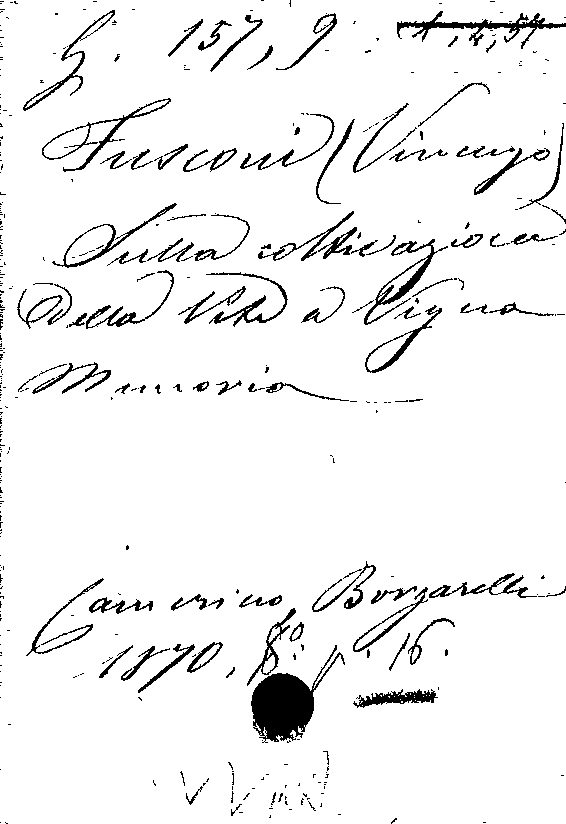 G. 157, 9 1, 2, 57
Fusconi (Vincenzo)
Sulla coltivazione
Della Vite a Vigna
Memoria
Camerino, Borgarelli
1870, 8º. p. 16.